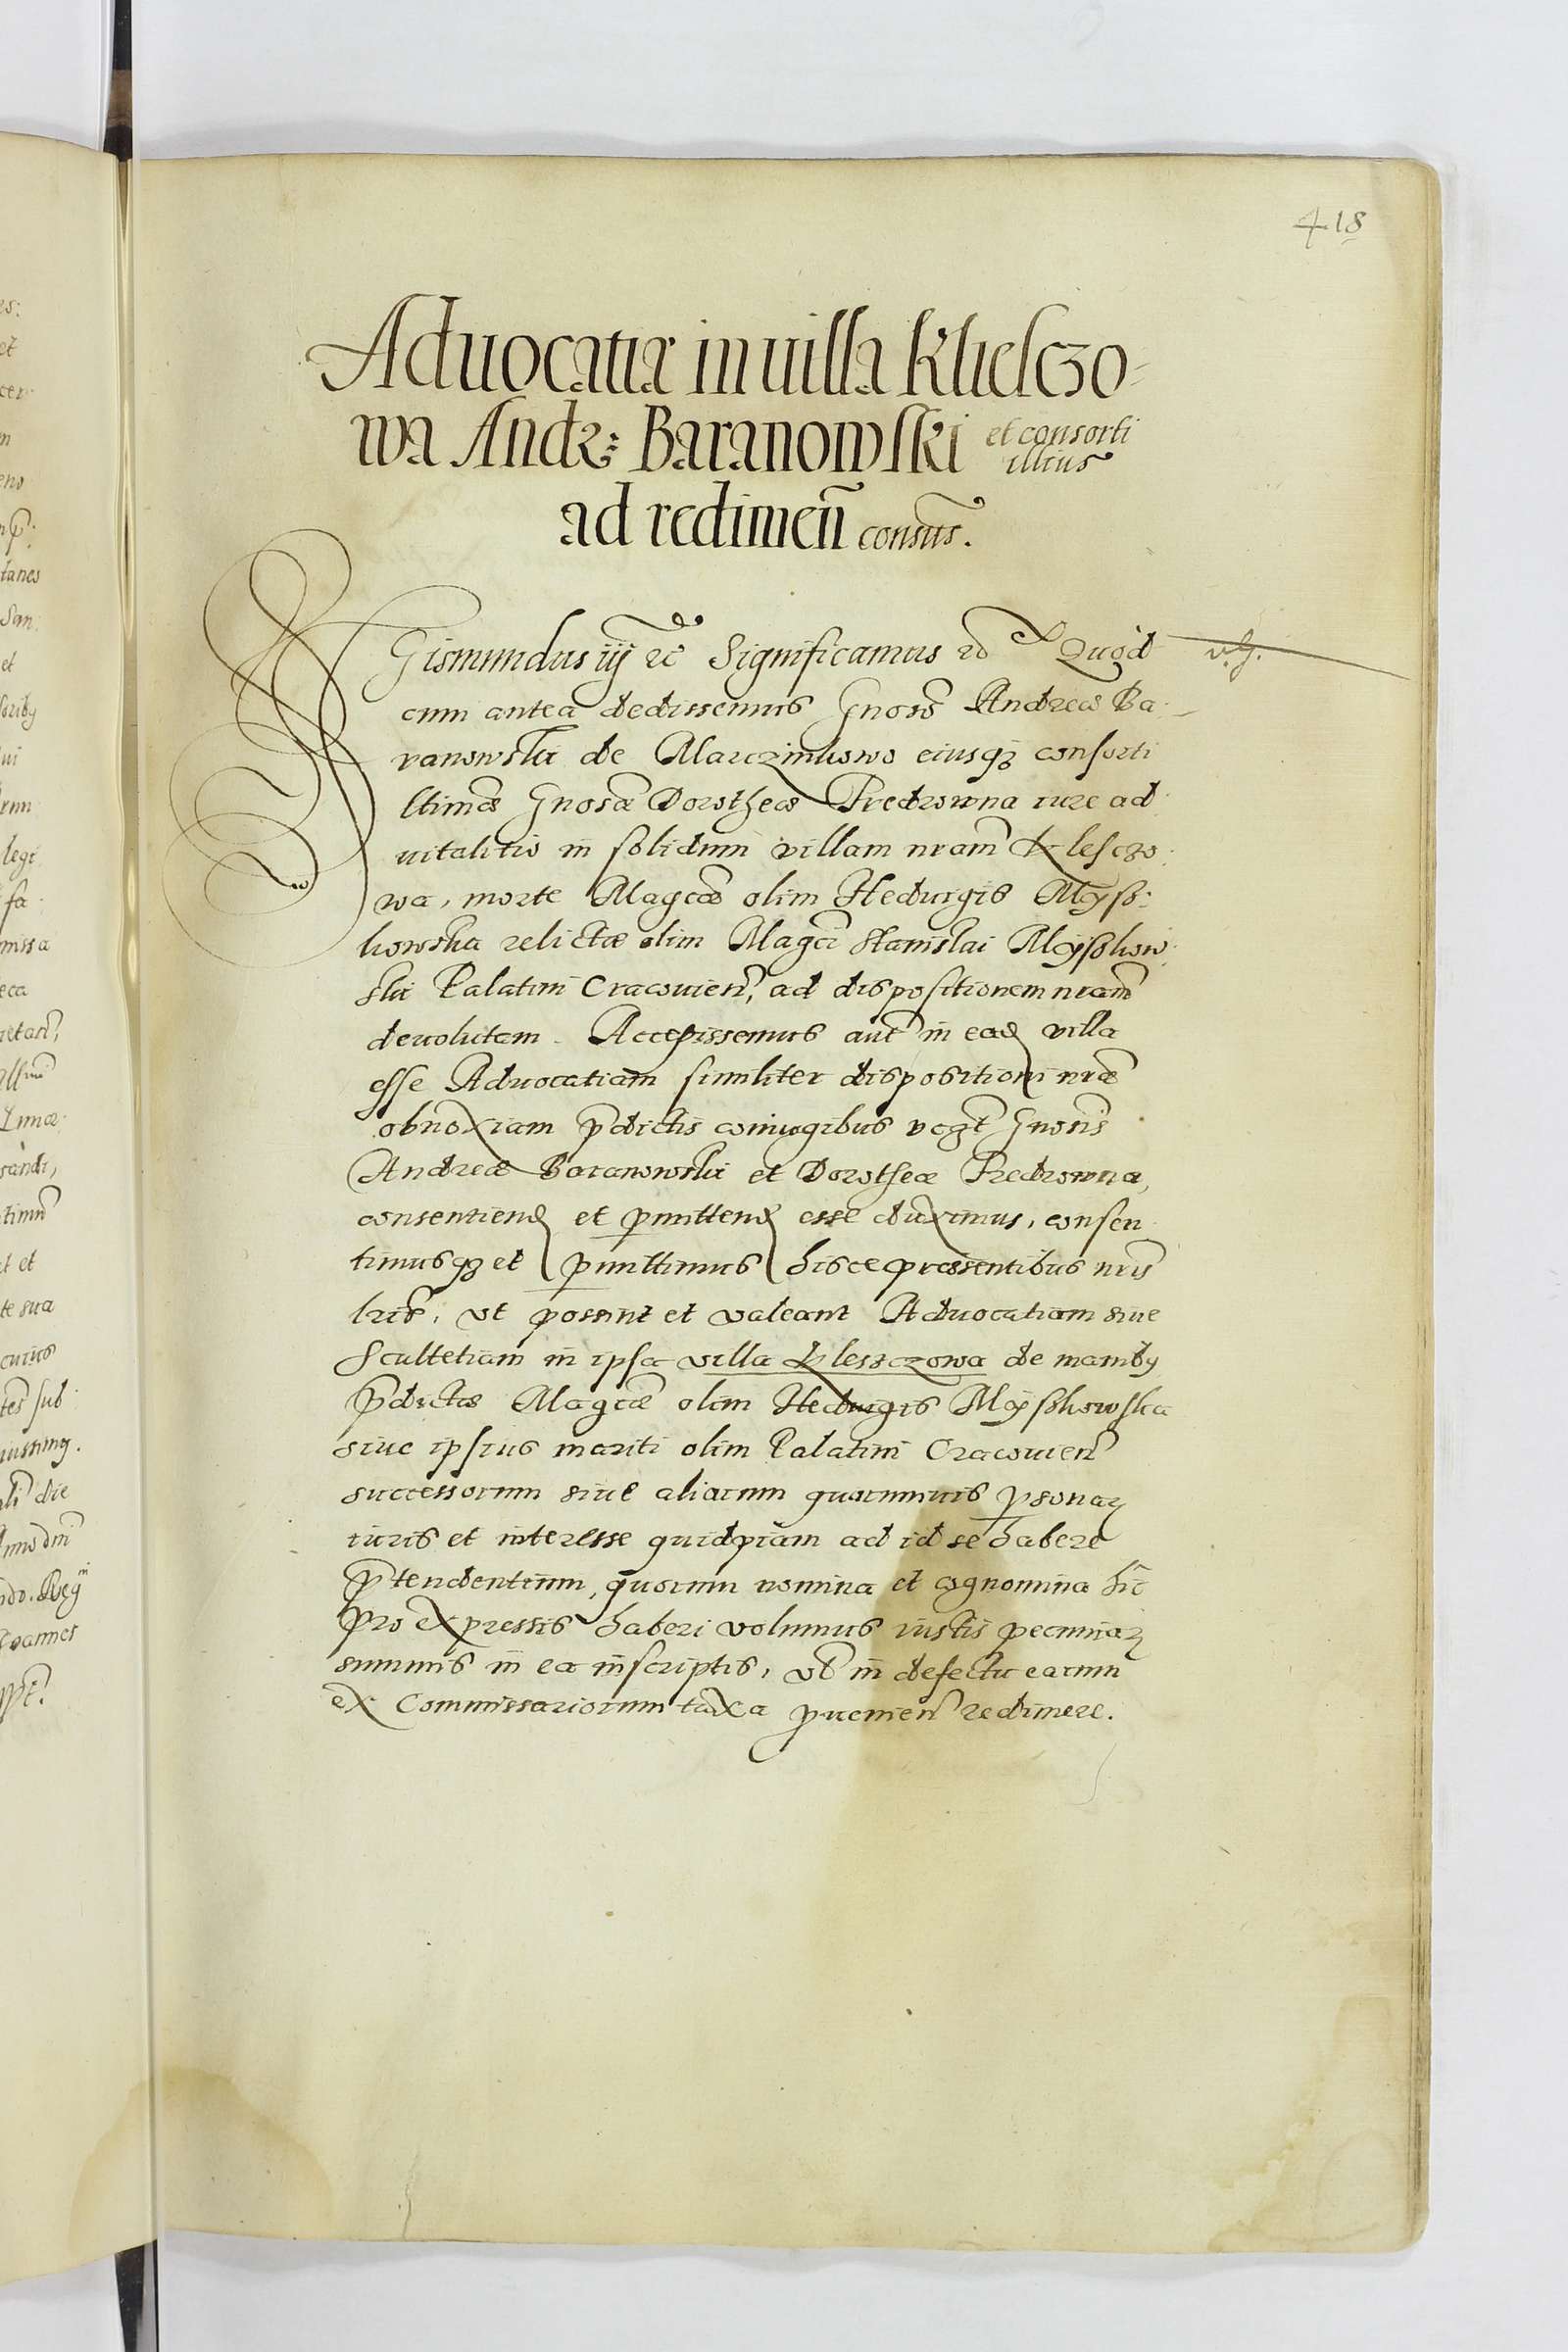 418
Aduocatia in uilla Khlesczo=
wa Andr: Baranowski et consorti
illius
ad redimen̄ consūs.
Sigismundus iij etc Significamus etc Quod
v.g.
cum antea dedissemus Gnoso Andreæ Ba-
ranowski de Marczinkowo eiusq₃ consorti
ltimæ Gnosæ Dorotheæ Predrowna iure ad
uitalitio in solidum villam nram Klesczo:
wa, morte Magcæ olim Heduigis Mÿss:
kowska relictæ olim Magci Stanislai Mÿsskow
ski Palatini Cracouien̄, ad dispositionem nram
deuolutam. Accepissemus aut in ead villa
esse Aduocatiam similiter dispositioni nræ
obnoxiam p̄dictis coniugibus Gnosis
Andreæ Baranowski et Dorotheæ Predrowna,
consentiend et pmittend esse duximus, consen
timusq₃ et pmittimus hisce præsentibus nris
lris, vt possint et valeant Aduocatiam siue
Scultetiam in ipsa villa Klessczowa de manibꝫ
p̄dictæ Magcæ olim Heduigis Mÿsskowska
siue ipsius mariti olim Palatini Cracouien̄
successorum siue aliarum quarumuis psonaꝝ
iuris et interesse quidpiam ad id se habere
p̄tendentium, quorum nomina et cognomina hic
pro expressis haberi volumus iustis pecuniaꝝ
summis in ea inscriptis, vł in defectu earum
ex Commissariorum taxa puenien̄ redimere.